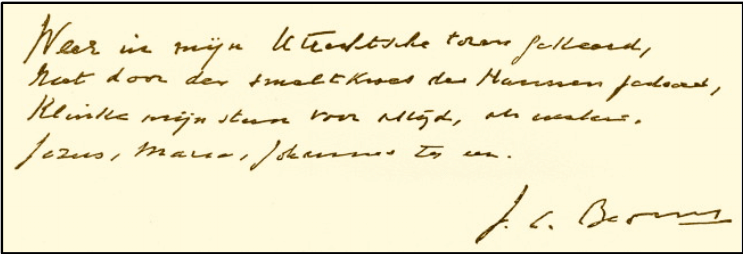 Weer in mijn Utrechtsche toren gekeerd,
Niet door der smeltkroes der Mannen gedeerd,
Klinke mijn stem voor altijd, als weleer,
Jezus, Maria, Johannes ter eer.
J. C.